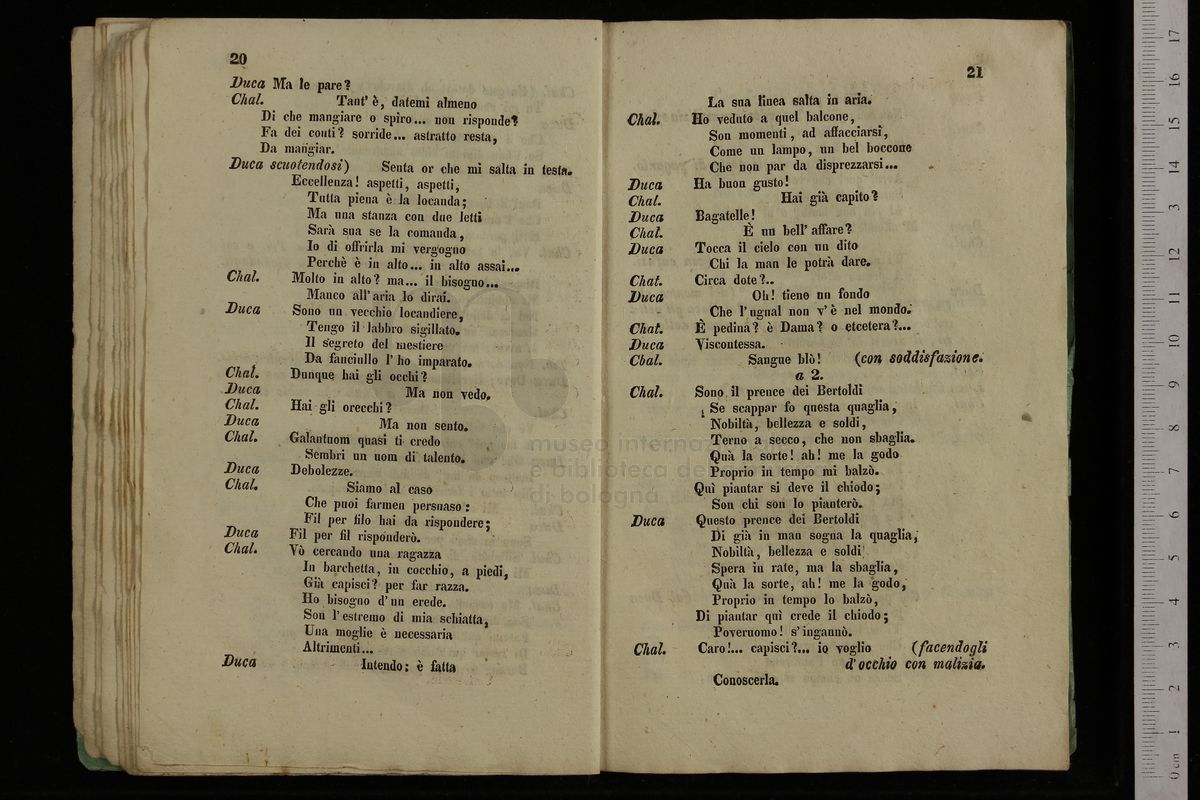 20
Duca Ma le pare?
Chal. Tant' è, datemi almeno
Di che mangiare o spiro... non risponde?
Fa dei conti? sorride... astratto resta,
Da mangiar.
Duca scuotendosi) Senta or che mi salta in testa.
Eccellenza! aspetti, aspetti,
Tutta piena è la locanda;
Ma una stanza con due letti
Sarà sua se la comanda,
Io di offrirla mi vergogno
Perchè è in alto... in alto assai...
Chal. Molto in alto? ma... il bisogno...
Manco all'aria lo dirai.
Duca Sono un vecchio locandiere,
Tengo il labbro sigillato.
Il segreto del mestiere
Da fanciullo l' ho imparato.
Chal. Dunque hai gli occhi?
Duca Ma non vedo.
Chal. Hai gli orecchi?
Duca Ma non sento.
Chal. Galantuom quasi ti credo
Sembri un uom di talento.
Duca Debolezze.
Chal. Siamo al caso
Che puoi farmen persuaso:
Fil per filo hai da rispondere;
Duca Fil per fil risponderò.
Chal. Vò cercando una ragazza
In barchetta, in cocchio, a piedi,
Già capisci? per far razza.
Ho bisogno d'un erede.
Son l'estremo di mia schiatta,
Una moglie è necessaria
Altrimenti...
Duca Intendo; è fatta
21
La sua linea salta in aria.
Chal. Ho veduto a quel balcone,
Son momenti, ad affacciarsi,
Come un lampo, un bel boccone
Che non par da disprezzarsi...
Duca Ha buon gusto!
Chal. Hai già capito?
Duca Bagatelle!
Chal. È un bell' affare?
Duca Tocca il cielo con un dito
Chi la man le potrà dare.
Chal. Circa dote?..
Duca Oh! tiene un fondo
Che l'ugual non v' è nel mondo.
Chal. È pedina? è Dama? o etcetera?...
Duca Viscontessa.
Chal. Sangue blò! (con soddisfazione.
a 2.
Chal. Sono il prence dei Bertoldi
Se scappar fo questa quaglia,
Nobiltà, bellezza e soldi,
Terno a secco, che non sbaglia.
Quà la sorte! ah! me la godo
Proprio in tempo mi balzò.
Quì piantar si deve il chiodo;
Son chi son lo pianterò.
Duca Questo prence dei Bertoldi
Di già in man sogna la quaglia,
Nobiltà, bellezza e soldi
Spera in rate, ma la sbaglia,
Quà la sorte, ah! me la godo,
Proprio in tempo lo balzò,
Di piantar quì crede il chiodo;
Poveruomo! s'ingannò.
Chal. Caro!... capisci?... io voglio (facendogli
d'occhio con malizia.
Conoscerla.
museo interna
e biblioteca de
di bologna